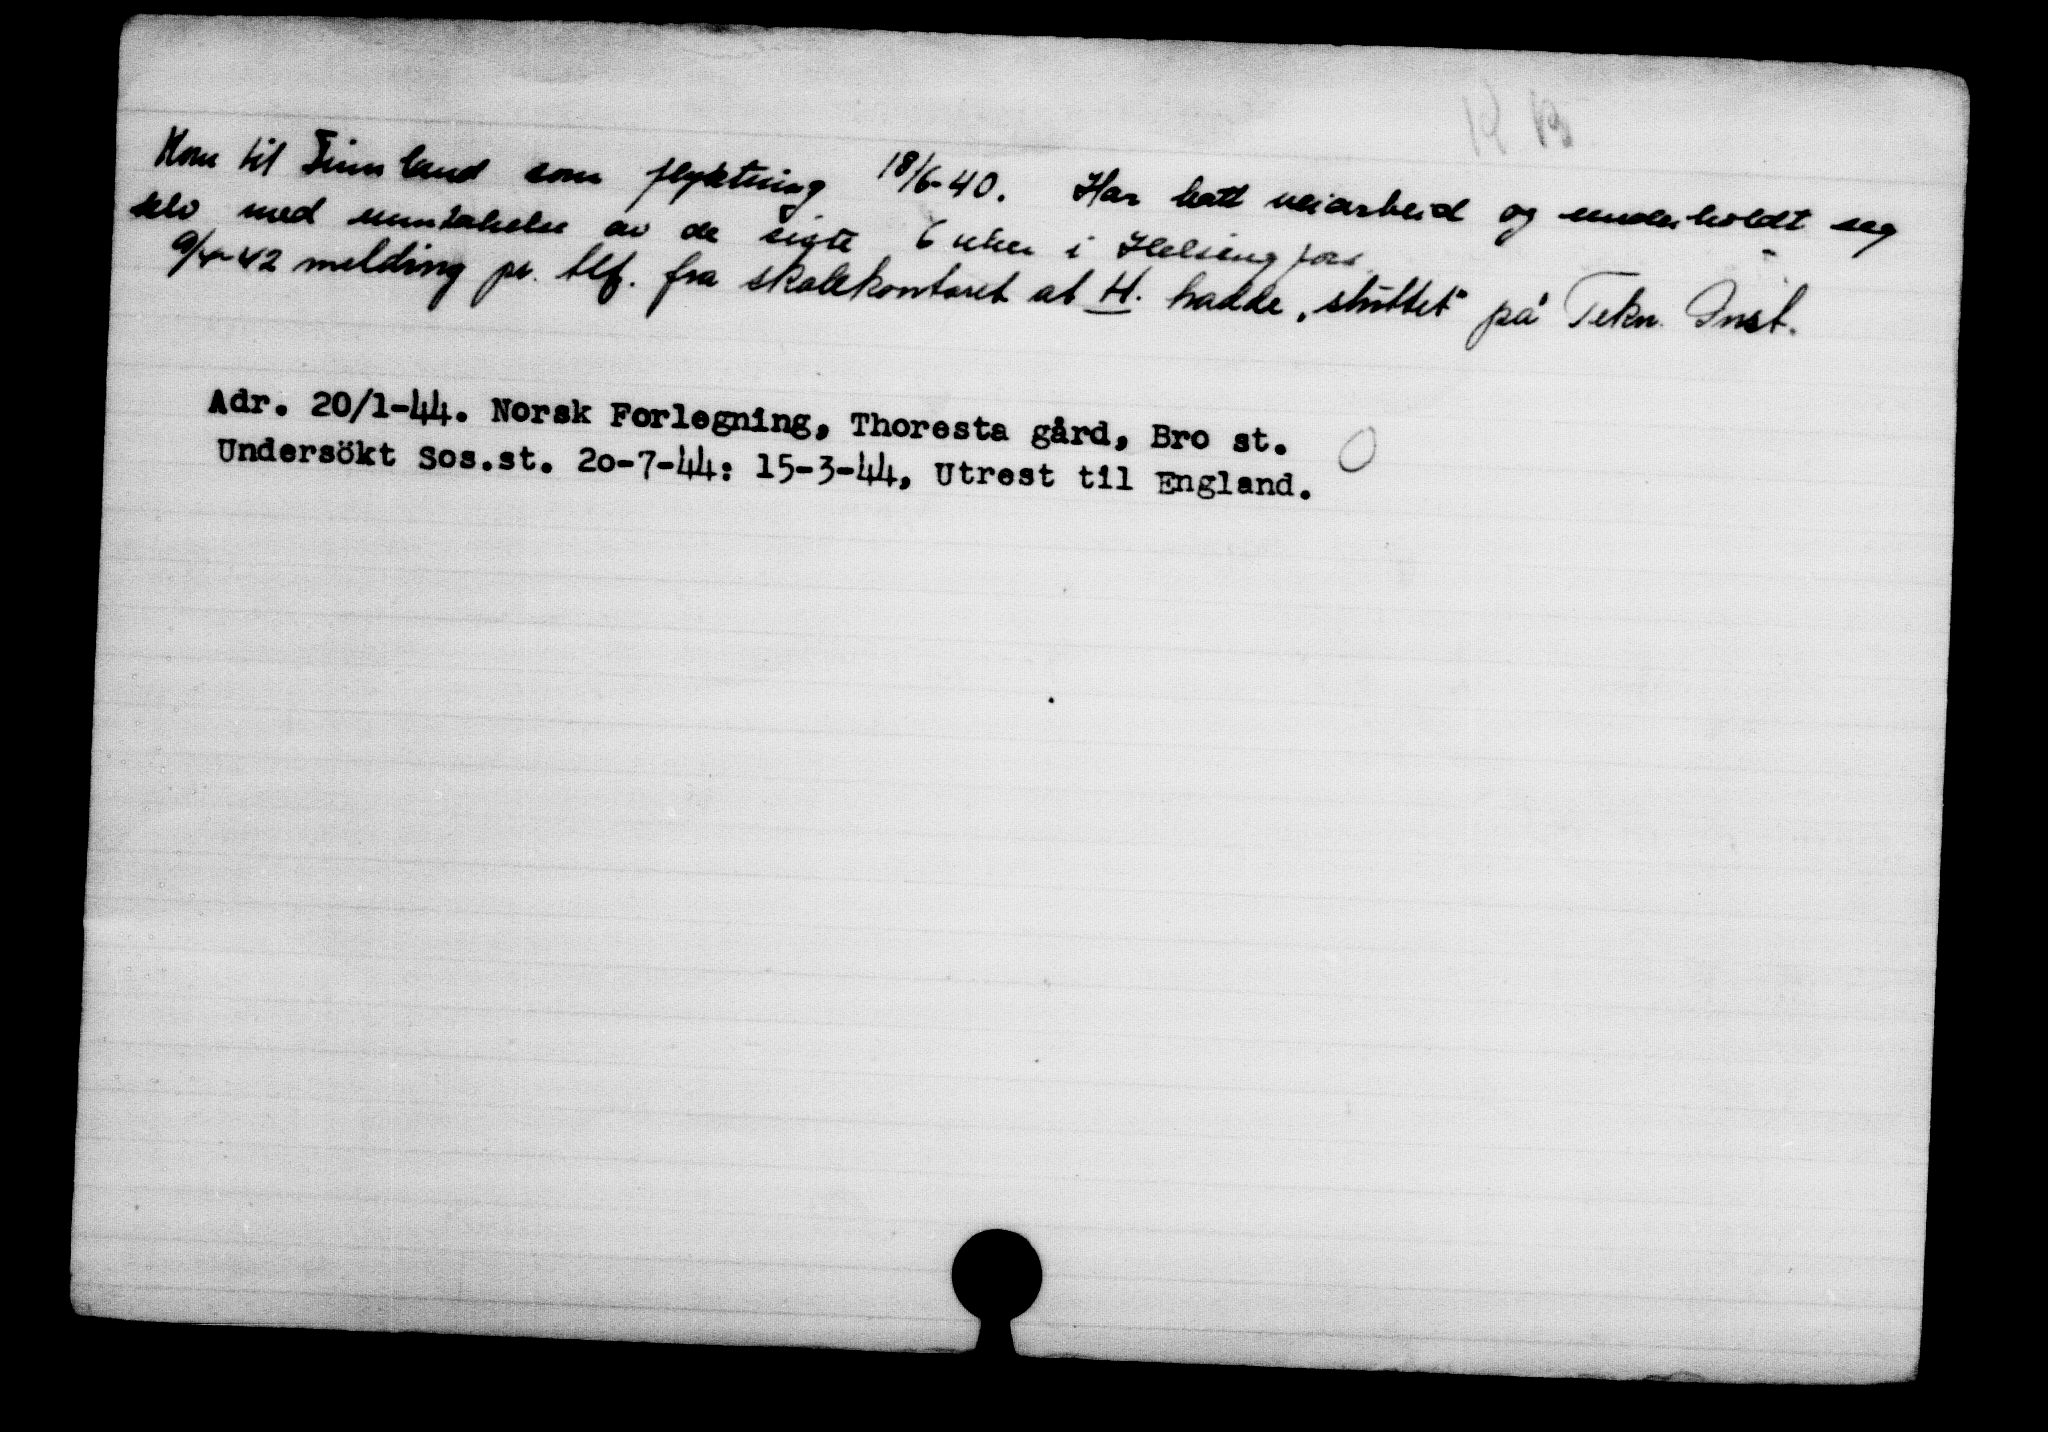 Kom til Finnland som flyktning 18/6-40. Har hatt veiarbeid og underholdt seg
selv med unntakelse av de siste 6 uker i Helsingfors.
9/4-42 melding pr. tlf. fra skolekontoret at H. hadde „sluttet" på Tekn. Inst.
Adr. 20/1-44. Norsk Forlegning, Thoresta gård, Bro st.
Undersökt Sos.st. 2o-7-44: 15-3-44, Utrest til England.